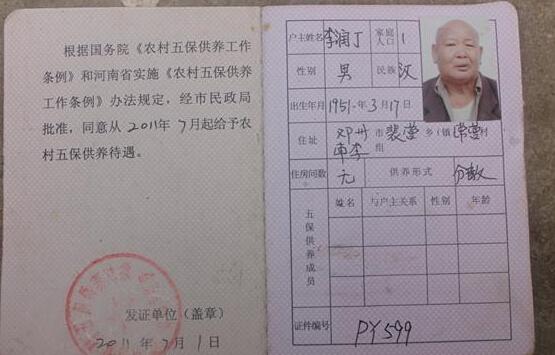 根据国务院《农村五保供养工作
条例》和河南省实施《农村五保供养
工作条例》办法规定，经市民政局
批准，同意从2011年7月起给予农
村五保供养待遇。
发证单位（盖章）
2011年7月1日
户主姓名 李润丁 家庭人口 1
性别 男 民族 汉
出生年月 1951年3月17日
住址 邓州市裴营乡（镇 常营村
车李 组
住房间数 无 供养形式 分散
五保供养成员 姓名 与户主关系 性别 年龄
证件编号 PY599